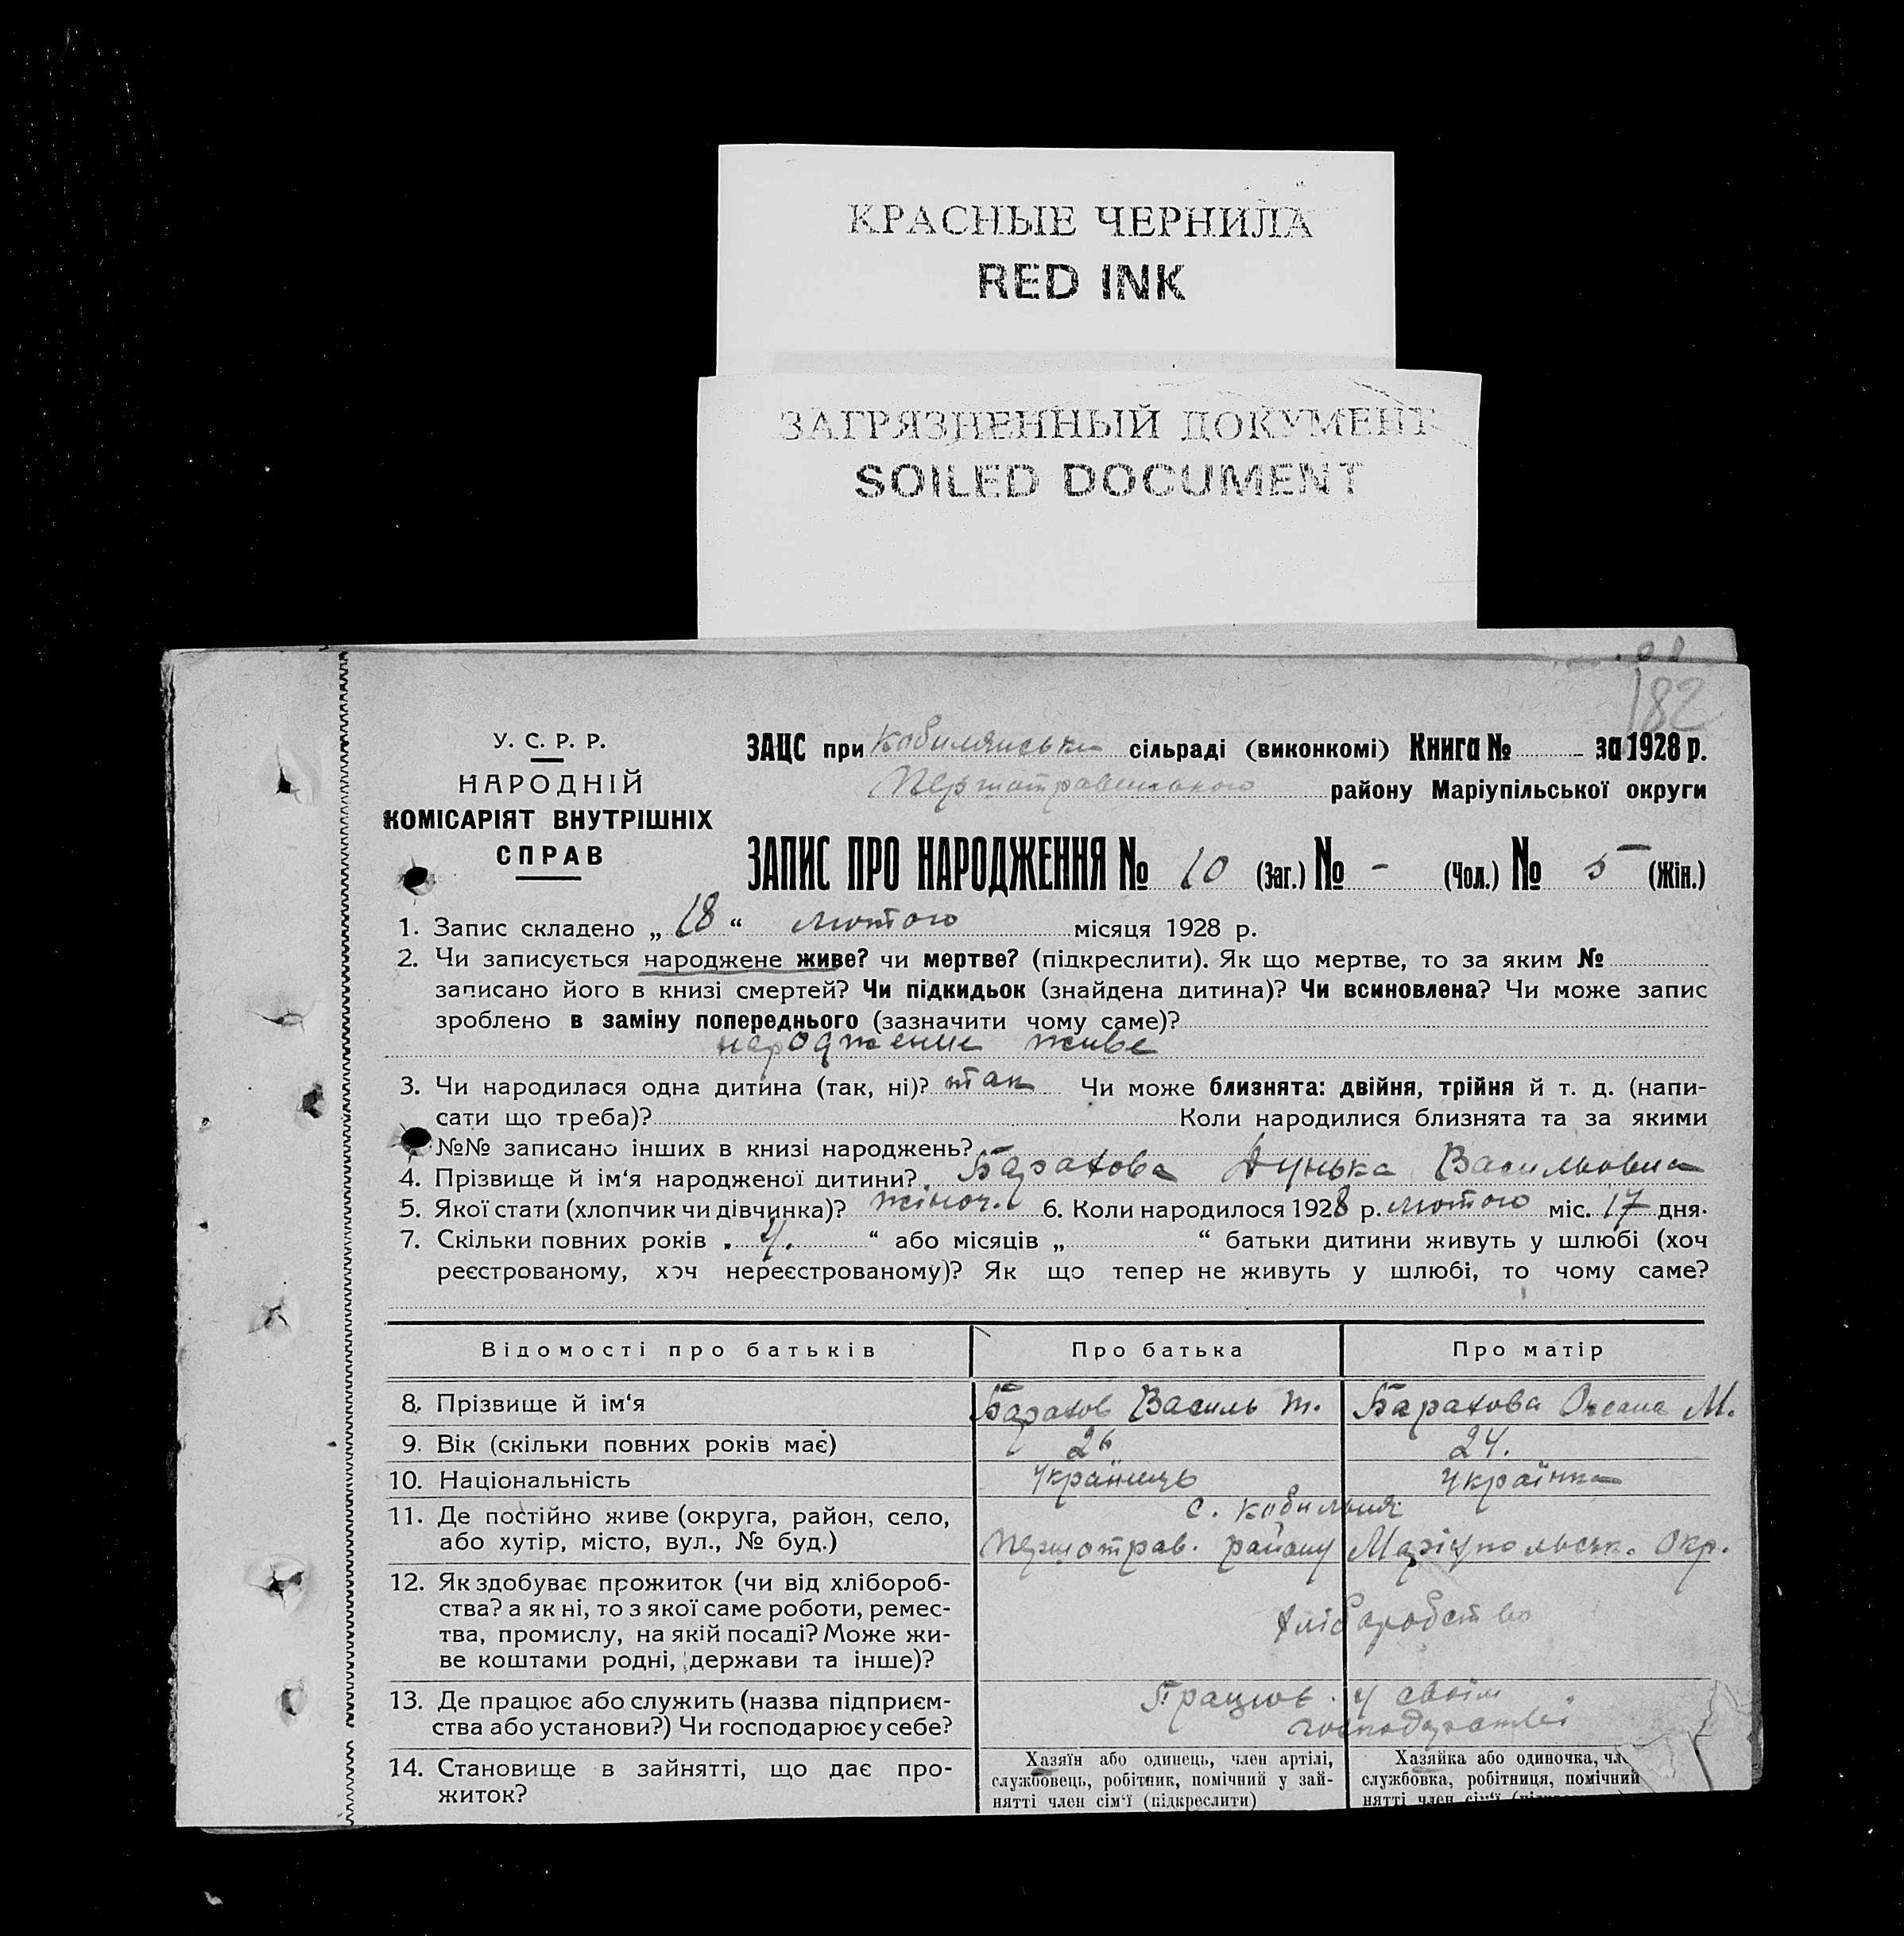 КРАСНЫЕ ЧЕРНИЛА
RED INK
ЗАГРЯЗНЕННЫЙ ДОКУМЕНТ
SOILED DOCUMENT
182
У. С. Р. Р.
НАРОДНІЙ
КОМІСАРІЯТ ВНУТРІШНІХ
СПРАВ
ЗАЦС при Кобилянськ сільраді (виконкомі) Книга № - за 1928 р.
Першотравенського району Маріупільської округи
ЗАПИС ПРО НАРОДЖЕННЯ № 10 (Заг.) № - (Чол.) № 5 (Жін.)
1. Запис складено „ 18 “ лютого місяця 1928 р.
2. Чи записується народжене живе? чи мертве? (підкреслити). Як що мертве, то за яким №
записано його в книзі смертей? Чи підкидьок (знайдена дитина)? Чи всиновлена? Чи може запис
зроблено в заміну попереднього (зазначити чому саме)?
народжение живе
3. Чи народилася одна дитина (так, ні)? так Чи може близнята: двійня, трійня й т. д. (напи-
сати що треба)? Коли народилися близнята та за якими
№№ записано інших в книзі народжень?
4. Прізвище й ім‘я народженої дитини? Барахова Дунька Васильовна
5. Якої стати (хлопчик чи дівчинка)? жіноч. 6. Коли народилося 1928 р. лютого міс. 17 дня.
7. Скільки повних років „ 4. “ або місяців „ “ батьки дитини живуть у шлюбі (хоч
реєстрованому, хоч нереєстрованому)? Як що тепер не живуть у шлюбі, то чому саме?
Відомості про батьків Про батька Про матір
8. Прізвище й ім‘я Барахов Василь Т. Барахова Оксана М.
9. Вік (скільки повних років має) 26 24.
10. Національність Українець Українка
11. Де постійно живе (округа, район, село, с. Кобильня
або хутір, місто, вул., № буд.) Першотрав. району Маріупольськ. Окр.
12. Як здобуває прожиток (чи від хлібороб-
ства? а як ні, то з якої саме роботи, ремес- хліборобство
тва, промислу, на якій посаді? Може жи-
ве коштами родні, держави та інше)?
13. Де працює або служить (назва підприєм- Працює у своїм
ства або установи?) Чи господарює у себе? господарстві
14. Становище в зайнятті, що дає про- Хазяїн або одинець, член артілі, Хазяйка або одиночка, чл
житок? службовець, робітник, помічний у зай- службовка, робітниця, помічний
нятті член сім‘ї (підкреслити) нятті член сім‘ї